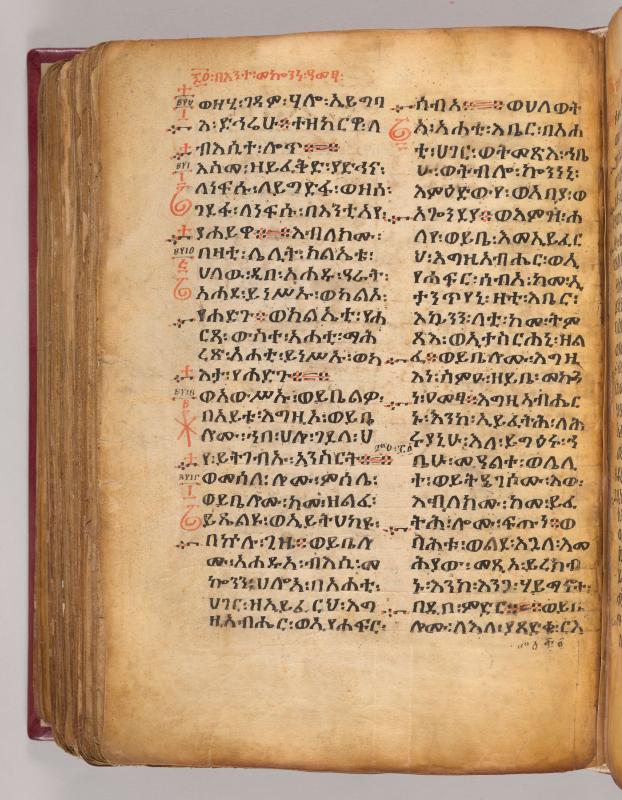 ፷፩፡በእንተ፡መኰንነ፡ዓመፃ፡
ወዘሂ፡ገዳም፡ሃሎ፡ኢይግባ
እ፡ድኅሬሁ፨ተዘከርዋ፡ለ
ብእሲተ፡ሎጥ፨
እስመ፡ዘይፈቅድ፡ያድኅና፡
ለነፍሱ፡ለይግድፋ፡ወዘሰ፡
ገደፋ፡ለነፍሱ፡በእንቲአየ፡
ያሐይዋ፨እብለክሙ፡
በዛቲ፡ሌሊት፡ክልኤቱ፡
ሀለው፡ዲበ፡አሐዱ፡ዓራት፡
አሐደ፡ይነሥኡ፡ወካልአ፡
የሐድጉ፨ወክልኤቲ፡የሐ
ርጻ፡ውስተ፡አሐቲ፡ማሕ
ረጽ፡ለአሐቲ፡ይነሥኡ፡ወካ
እታ፡የሐድጉ፨
ወአውሥኡ፡ወይቤልዎ፡
በአይቴ፡እግዚኦ፡ወይቤ
ሎሙ፡ኀበ፡ሀሎ፡ገደላ፡ህ
የ፡ይትገብኡ፡አንስርት፨
ወመሰለ፡ሎሙ፡ምሳሌ፡
ወይቤሎሙ፡ከመ፡ዘልፈ፡
ይጼልዩ፡ወኢይትሀከዩ፡
በኵሉ፡ጊዜ፨ወይቤሎ
ሙ፡አሐዱ፡ብእሲ፡መ
ኰንን፡ሀሎ፡በአሐቲ፡
ሀገር፡ዘኢይፈርህ፡እግ
ዚአብሔር፡ወኢየሐፍር፡
ሰብአ፨ወሀለወት
አሐቲ፡እቤር፡በአሐ
ቲ፡ሀገር፡ወትመጽእ፡ኀቤ
ሁ፡ወትብሎ፡ኰንነኒ፡
እምዕድውየ፡ወአበያ፡ወ
አጐንደየ፨ወእምዝ፡ሐ
ለየ፡ወይቤ፡እመኢይፈር
ህ፡እግዚአብሔር፡ወኢ
የሐፍር፡ሰብአ፡ከመ፡ኢ
ታንጥየኒ፡ዛቲ፡እቤር፡
እኴንን፡ላቲ፡ከመ፡ትም
ጻእ፡ወኢታስርሐኒ፡ዘል
ፈ፨ወይቤሎሙ፡እግዚ
እነ፡ስምዑ፡ዘይቤ፡መኰን
ነ፡ዓመፃ፡እግዚአብሔር
ኑ፡እንከ፡ኢይፈትሕ፡ለኅ
ሩያኒሁ፡እለ፡ይግዕሩ፡ኀ
ቤሁ፡መዓልተ፡ወሌሊ
ተ፡ወይትዔገሶሙ፡እወ፡
እብለክሙ፡ከመ፡ይፈ
ትሕ፡ሎሙ፡ፍጡነ፨ወ
ባሕቱ፡ወልደ፡እጓለ፡እመ
ሕያው፡መጺኦ፡ይረክብ
ኑ፡እንከ፡እንጋ፡ሃይማኖተ፡
በዲበ፡ምድር፨ወይቤ
ሎሙ፡ለእለ፡ያጸድቁ፡ርእ